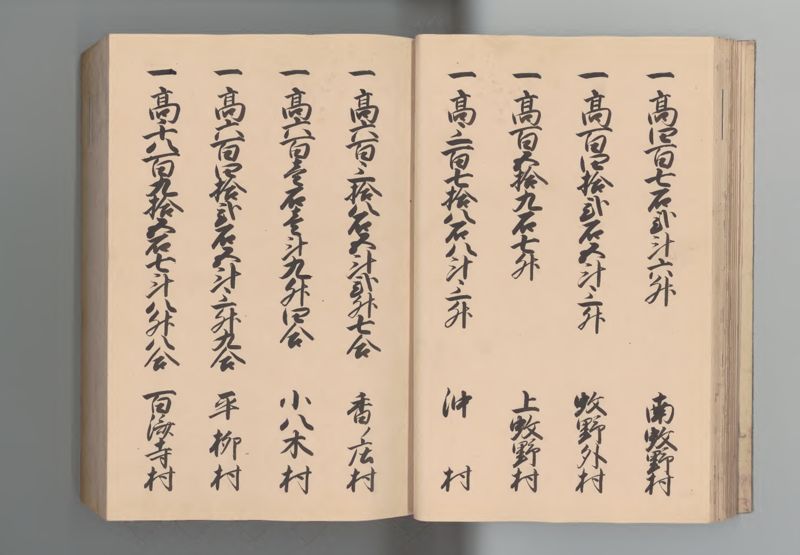 一 高四百七石弐斗六升 南蚊野村
一 高百四拾弐石五斗三升 蚊野外村
一 高百五拾九石七升 上蚊野村
一 高三百七拾八石八斗三升 沖村
一 高六百三拾八石五斗弐升七合 香ノ庄村
一 高六百壱石壱斗九升四合 小八木村
一 高六百四拾弐石五斗三升九合 平柳村
一 高千八百九拾五石七斗八升八合 百済寺村